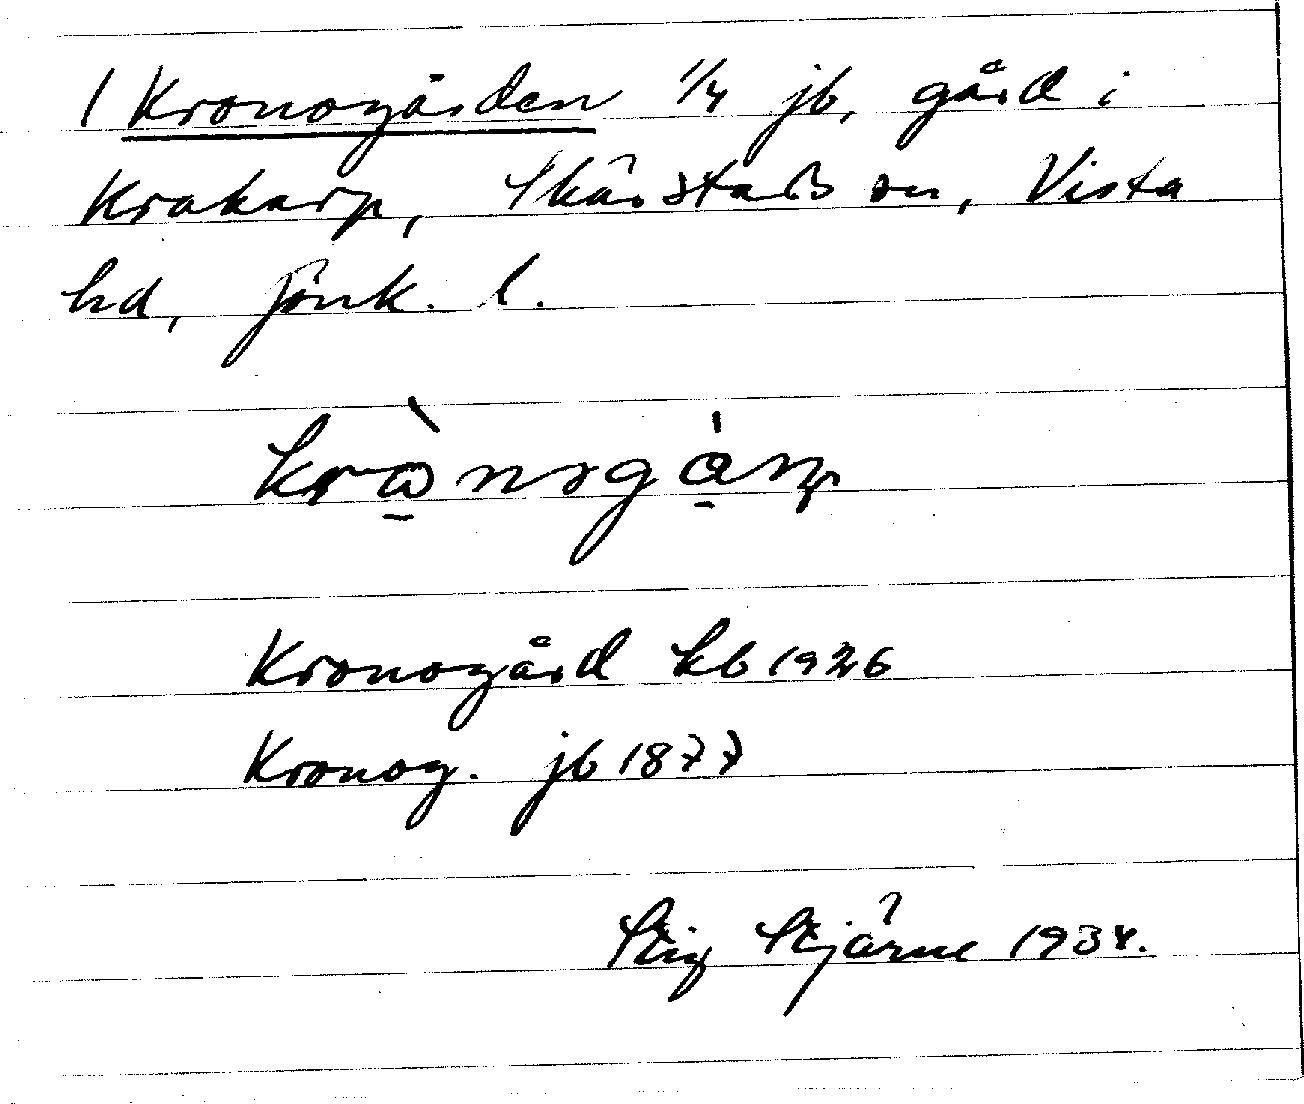 1 Kronogården 1/4 jb, gård i
Krakarp, Skärstads sn, Vista
hd, Jönk. l.
Kronogård kb 1926
Kronog. jb 1877
Stig Stjärne 1934.